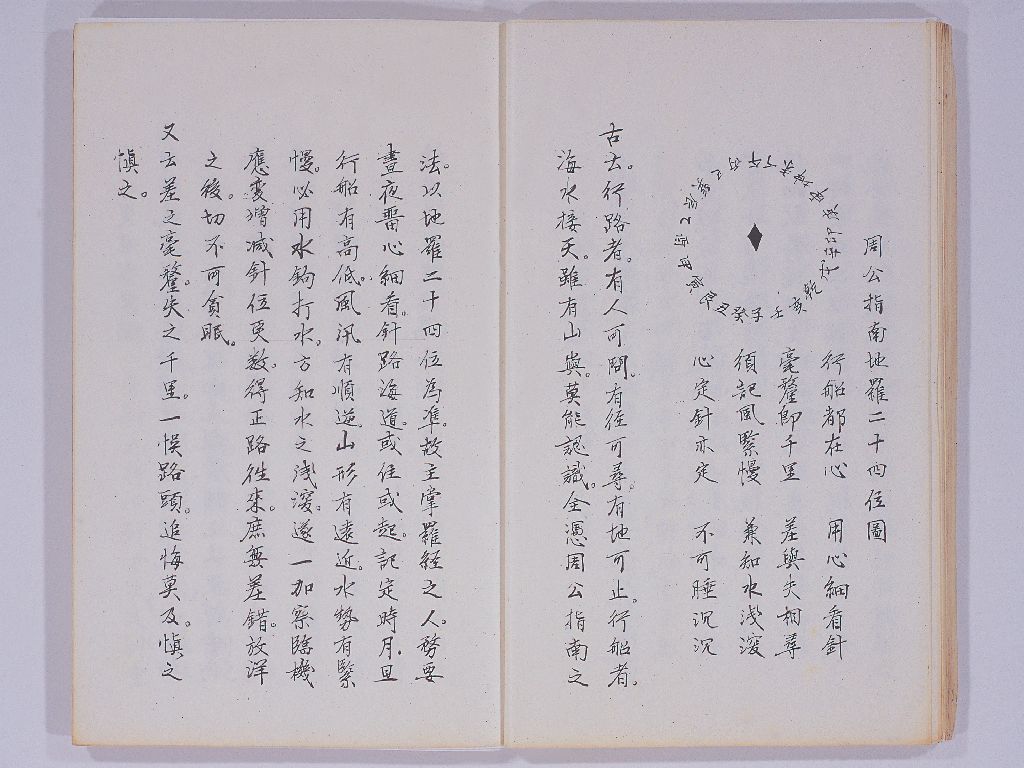 周公指南地羅二十四位圖
子癸丑艮寅甲卯乙辰巽巳丙午丁未坤申庚酉辛戌乾亥壬
行船都在心　用心細看針
毫釐即千里　差與失相尋
須記風緊慢　兼知水浅深
心定針亦定　不可睡沉沉
古云。行路者。有人可問。有徑可尋。有地可止。行船者。
海水接天。雖有山與。莫能認識。全憑周公指南之
法。以地羅二十四位為準。故主掌羅經之人。務要
晝夜畱心細看。針路海道。或住或起。記定時月。且
行船有高低。風汛有順逆。山形有遠近。水勢有緊
慢。必用水鈎打水。方知水之浅深。逐一加察。臨機
應變。增减針位更數。得正路往來。庶無差錯。放洋
之後。切不可貪眠。
又云差之毫釐。失之千里。一悞路頭。追悔莫及。慎之
慎之。